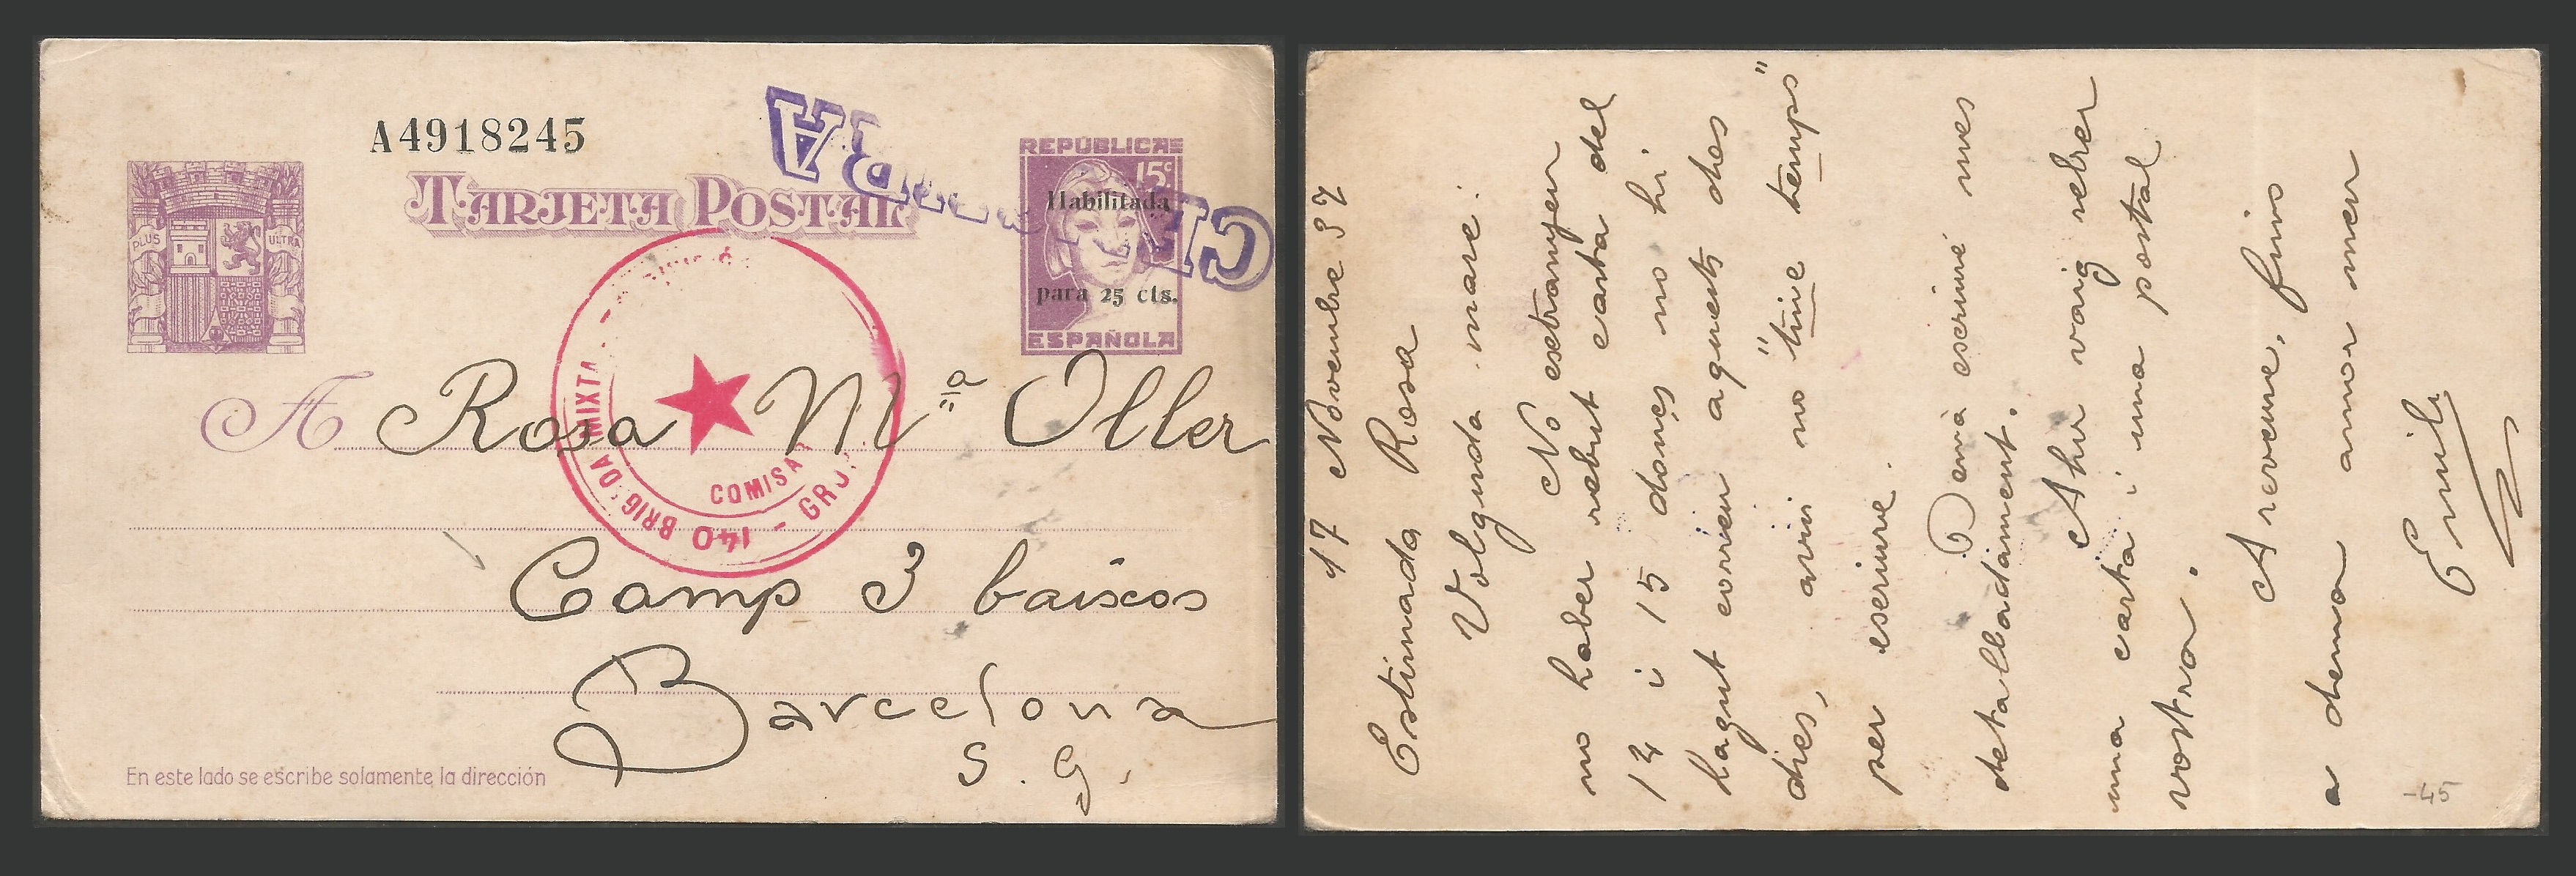 A4918245
TARJETA POSTAL
PLUS ULTRA
REPÚBLICA
15c
Habilitada
para 25 cts.
ESPAÑOLA
140 BRIGADA MIXTA
COMISAR
A Rosa Mª Oller
Camp 3 baixos
Barcelona
S. G.
En este lado se escribe solamente la dirección
17 Novembre 37
Estimada Rosa
Volguda mare:
No extranyeu
no haber rebut carta del
14 i 15 donçs no hi
hagut correu aquests dos
dies, avui no "tinc temps"
per escriure.
Demà escriuré mes
detalladament.
Ahir vaig rebrer
una carta i una postal
vostra.
A reveure, fins
a dema amor meu
Emili
-45